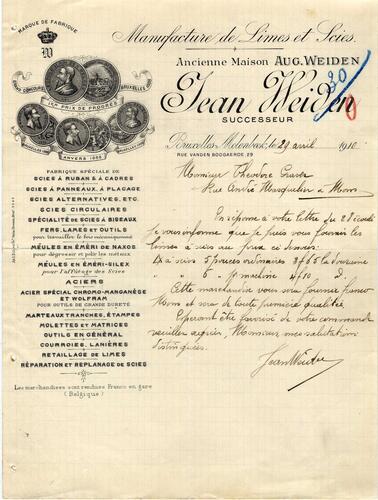 MARQUE DE FABRIQUE
W
Manufacture de Limes et Scies.
Ancienne Maison AUG. WEIDEN
Jean Weiden
SUCCESSEUR
GRAND CONCOURS
BRUXELLES
1er PRIX DE PROGRÈS
ANVERS 1885
Bruxelles-Molenbeek, le 29 avril 1910
RUE VANDEN BOOGAERDE, 29
FABRIQUE SPÉCIALE DE
SCIES A RUBAN & A CADRES
SCIES A PANNEAUX, A PLACAGE
SCIES ALTERNATIVES, ETC.
SCIES CIRCULAIRES
SPÉCIALITÉ DE SCIES A BISEAUX
FERS, LAMES ET OUTILS
pour travailler le bois mécaniquement
MEULES EN ÉMERI DE NAXOS
pour dégrossir et polir les métaux
MEULES EN ÉMERI-SILEX
pour l'affûtage des Scies
ACIERS
ACIER SPÉCIAL CHROMO-MANGANÈSE
ET WOLFRAM
POUR OUTILS DE GRANDE DURETÉ
MARTEAUX TRANCHES, ÉTAMPES
MOLETTES ET MATRICES
OUTILS EN GÉNÉRAL
COURROIES, LANIÈRES
RETAILLAGE DE LIMES
RÉPARATION ET REPLANAGE DE SCIES
Les marchandises sont rendues Franco en gare
(Belgique)
Monsieur Théodore
Rue André Masquelier à Mons
En réponse à votre lettre du 28 écoulé
je vous informe que je puis vous fournir les
limes à scies au prix ci-dessous
à scies 5 pouces ordinaires 3f65 la douzaine
" 6 " p machine 4f10 "
Cette marchandise vous sera fournie franco
Mons et sera de toute première qualité.
Espérant être favorisé de votre commande
veuillez agréer, Monsieur mes salutations
distinguées.
Jean Weiden